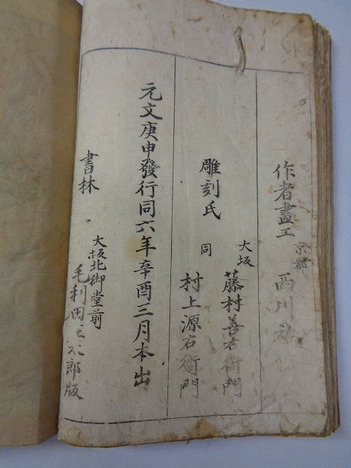 作者畫工 京都 西川
彫刻氏 大坂 藤村善右衛門
同 村上源右衛門
元文庚申發行同六年辛酉三月本出
書林 大坂北御堂前
毛利田 郎版